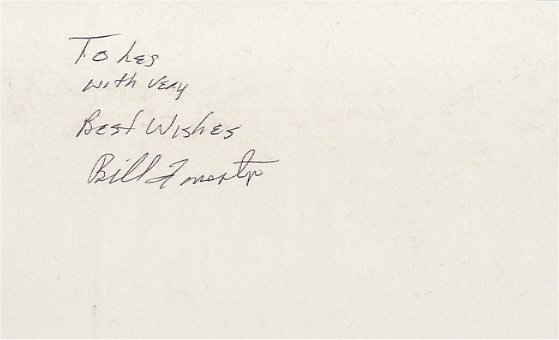 To Les
with very
Best Wishes
Bill